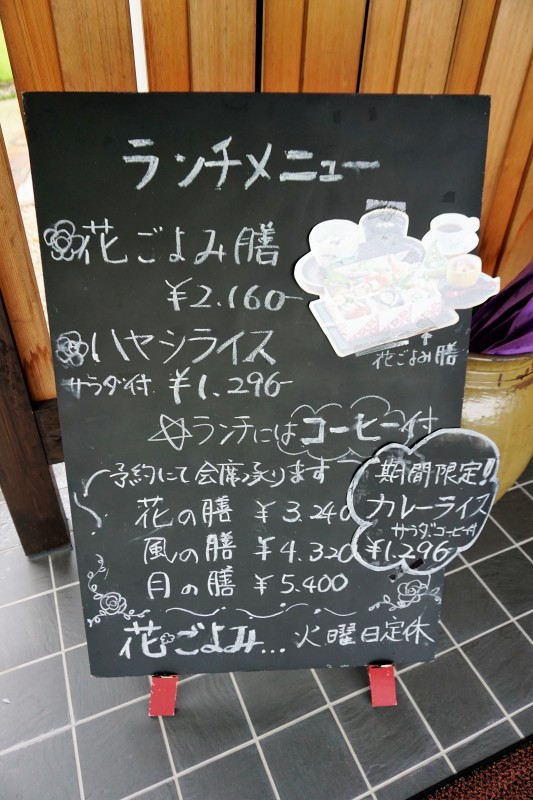 ランチメニュー
花ごよみ膳
¥2.160-
花ごよみ膳
ハヤシライス
サラダ付 ¥1.296-
☆ランチにはコーヒー付
予約にて会席承ります
花の膳 ¥3.240
風の膳 ¥4.320
月の膳 ¥5.400
期間限定!!
カレーライス
サラダコーヒー付
¥1.296-
花ごよみ... 火曜日定休